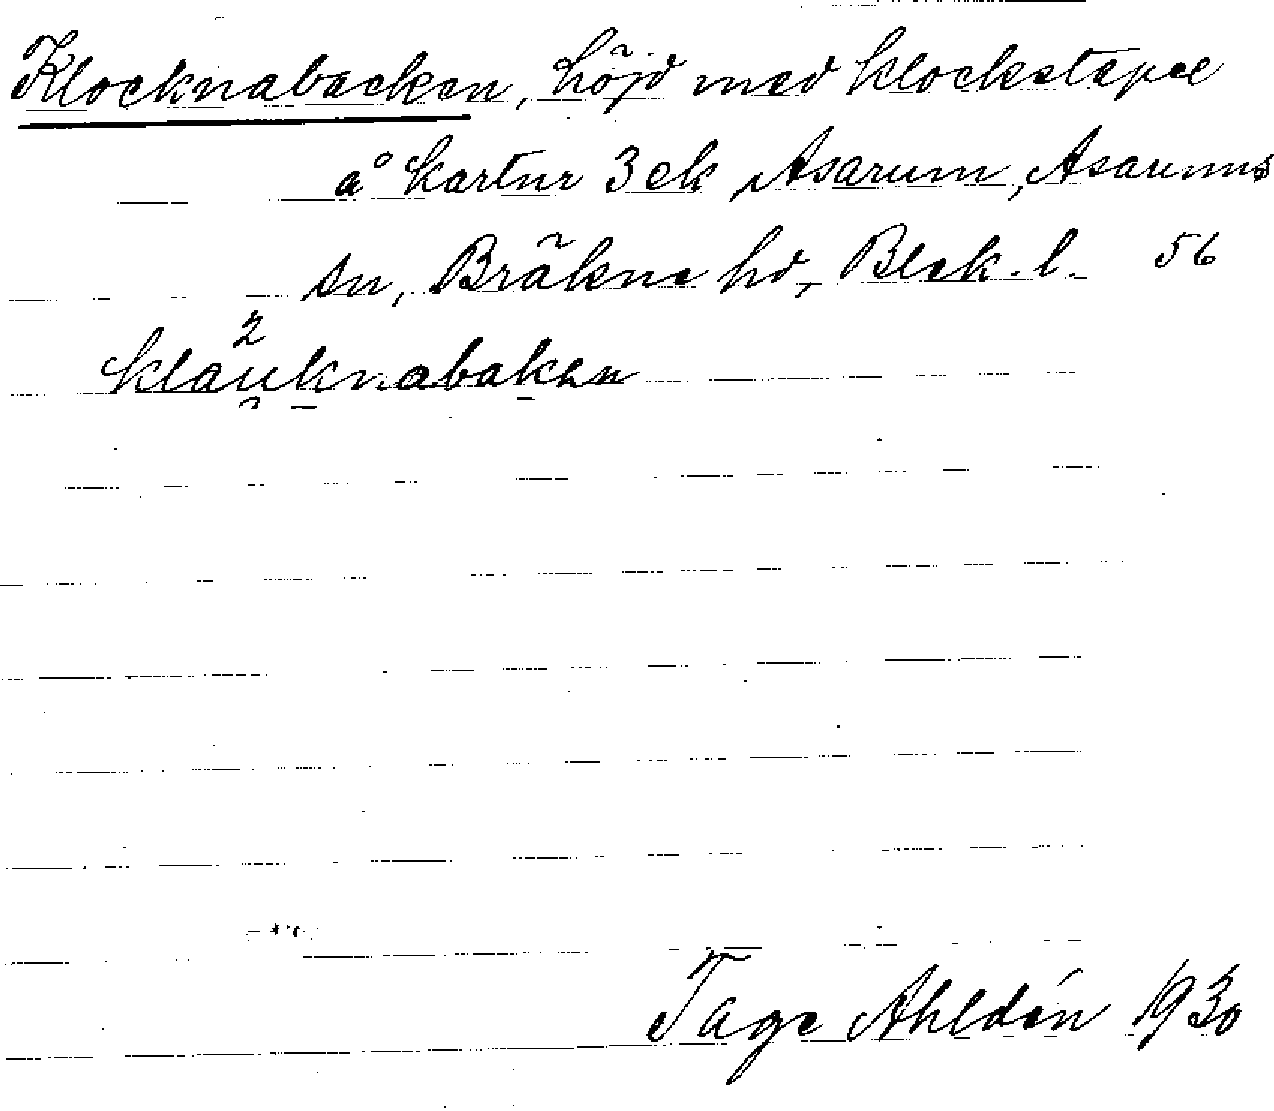 Klocknabacken, höjd med klockstapel
å kartnr 3 ek Asarum, Asarums
sn, Bräkne hd, Blek. l. 56
2
klauknabaken
Tage Ahldén 1930